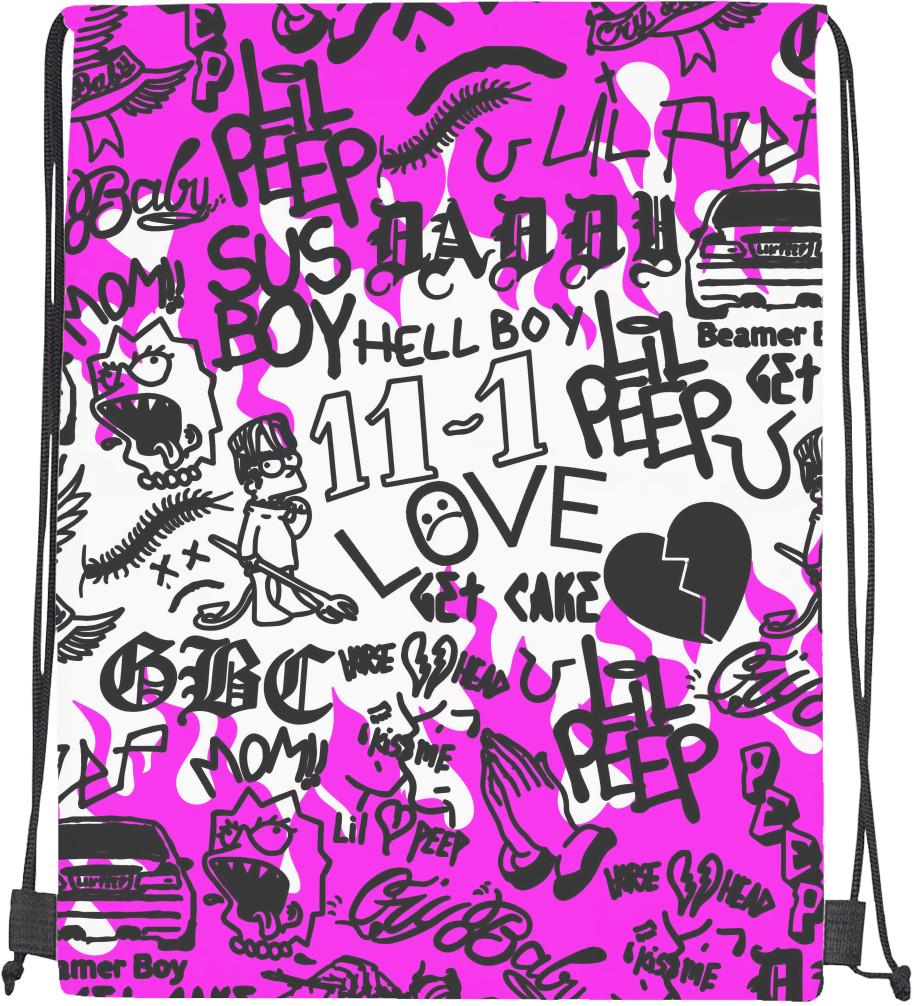 Cry
Baby
P
LiL
PEEP
Lil PeeP
Baby
SUS
BOY
DADDY
MOM!!
HELLBOY
Beamer B
GEt
11-1
LiL
PEEP
LOVE
GEt CAKE
GBC
HORSE HEAD
Cry
LiL
PEEP
MOM!!
kiss ME
PEEP
Lil PEEP
HORSE HEAD
Cry Baby
amer Boy
kiss ME
D